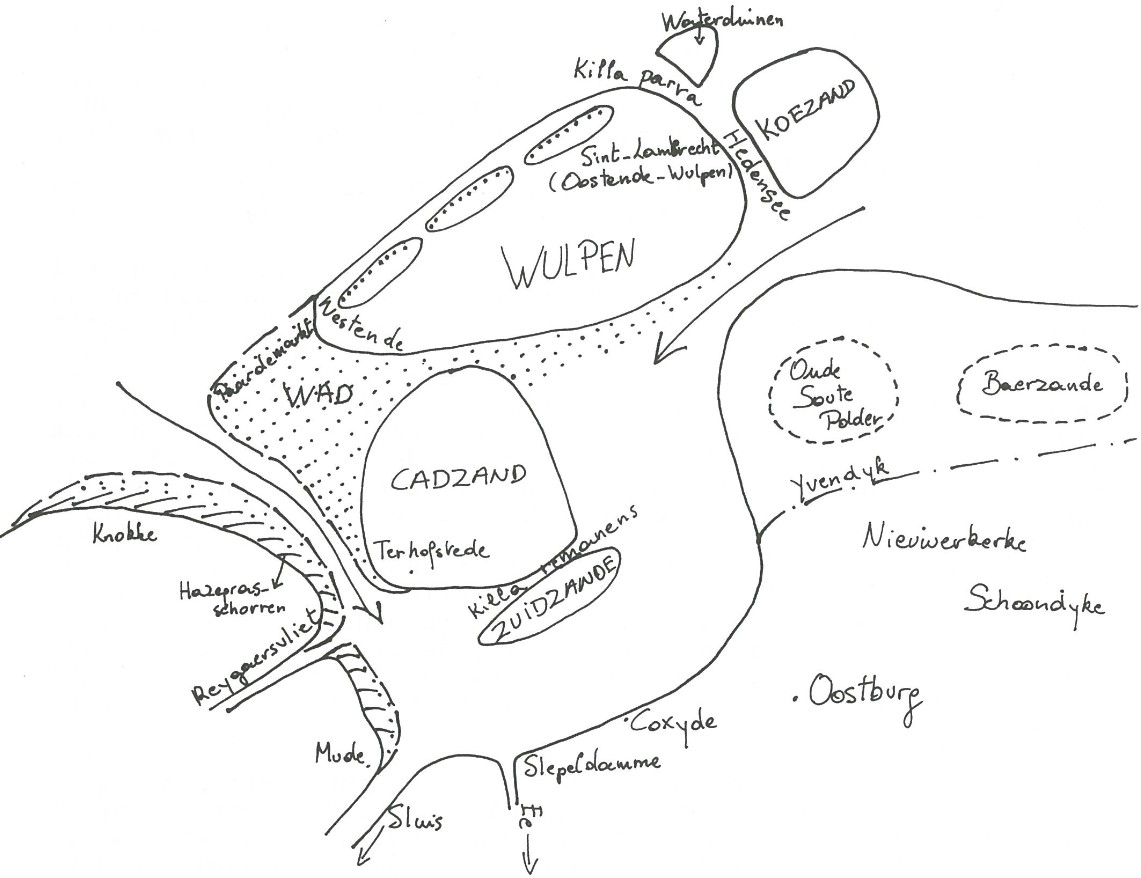 Waterduinen
Killa parva
KOEZAND
Hedensee
Sint-Lambrecht
(Oostende-Wulpen)
WULPEN
Westende
Paardemarkt
WAD
Oude
Soute
Polder
Baerzande
CADZAND
Yvendyk
Knokke
Terhofstede
Killa remanens
ZUIDZANDE
Nieuwerkerke
Hazegras-
schorren
Schoondyke
Reygaersvliet
Oostburg
Coxyde
Mude
Slepeldamme
Sluis
Ee